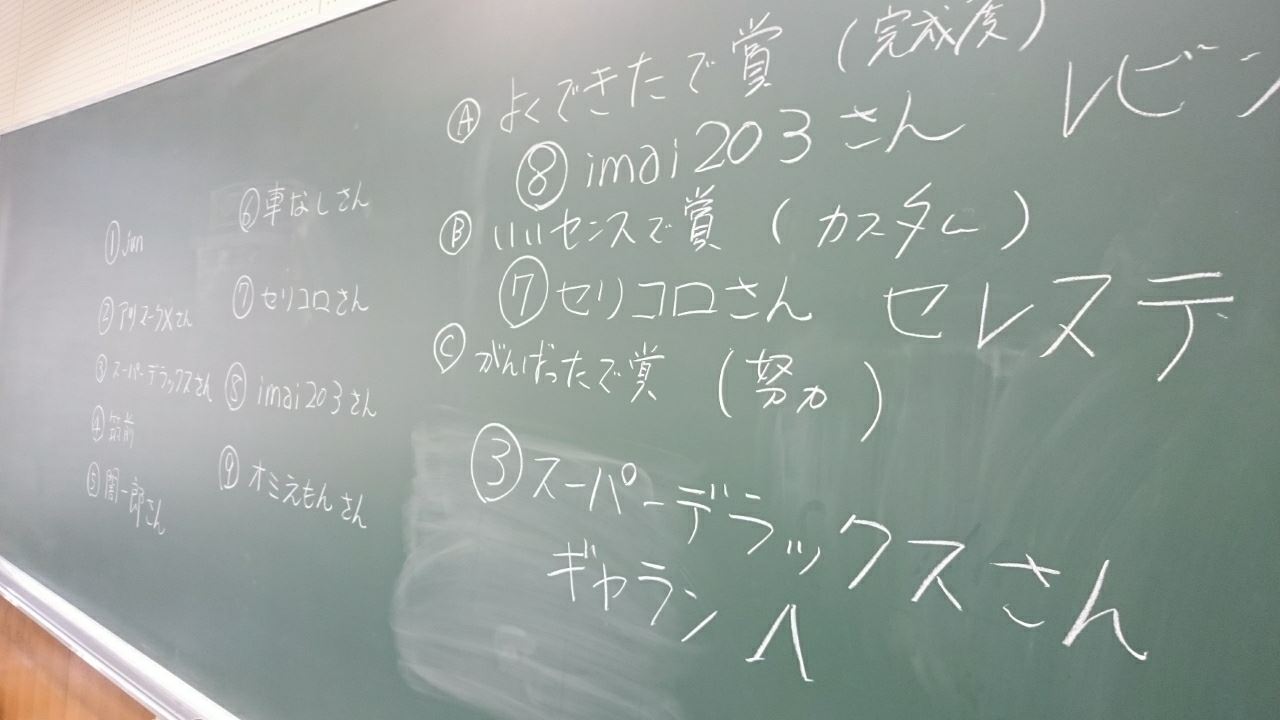 ① jun
② アリマークXさん
③ スーパーデラックスさん
④ 筑前
⑤ 闇一郎さん
⑥ 車なしさん
⑦ セリコロさん
⑧ imai203さん
⑨ オミえもんさん
Ⓐ よくできたで賞 (完成度)
⑧ imai203さん レビン
Ⓑ いいセンスで賞 (カスタム)
⑦ セリコロさん セレステ
Ⓒ がんばったで賞 (努力)
③ スーパーデラックスさん
ギャラン Λ